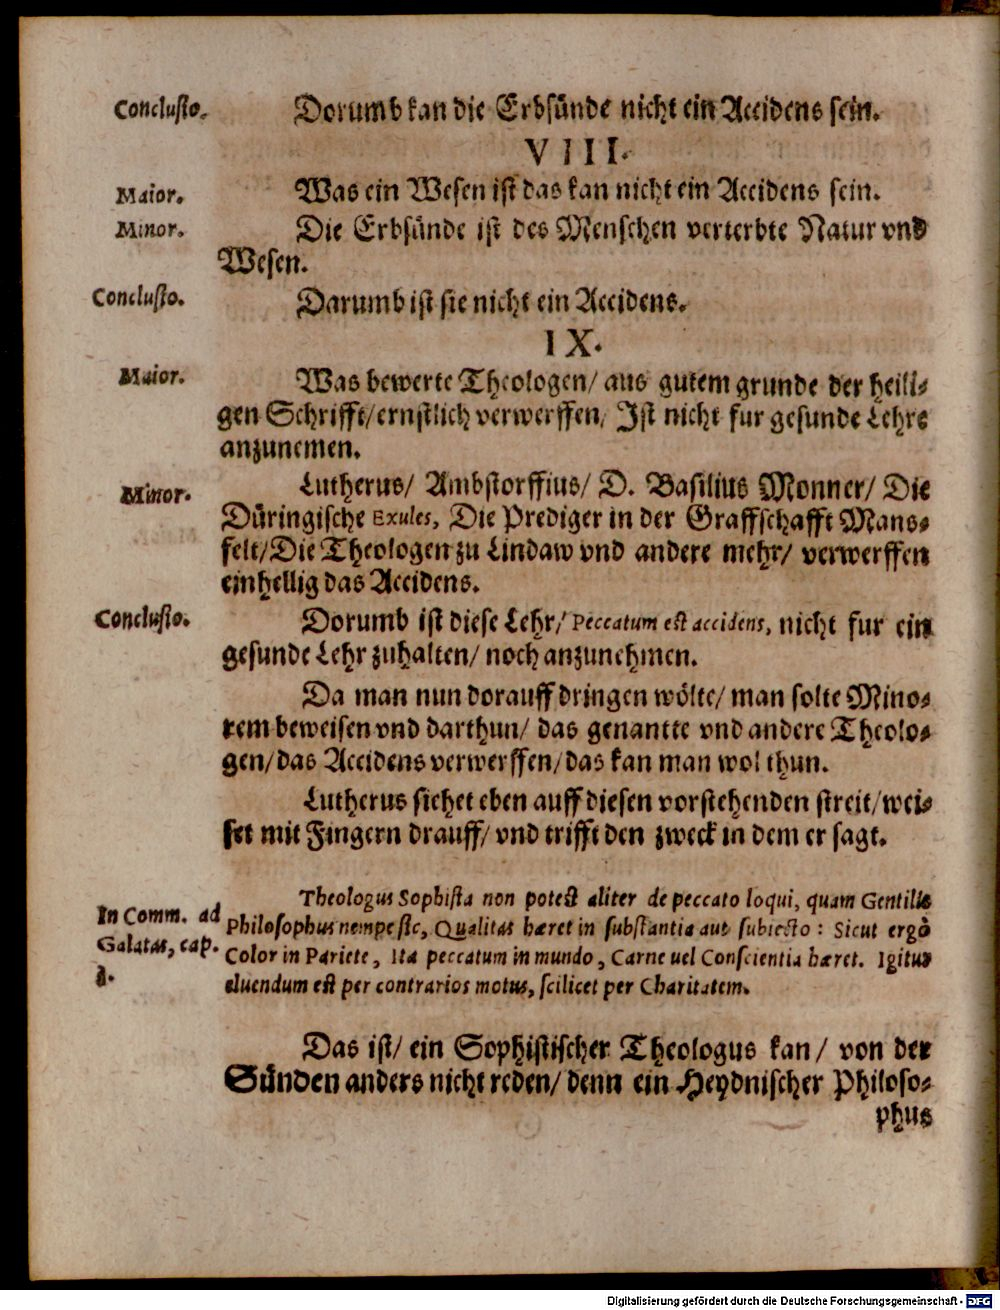 Conclusio. Dorumb kan die Erbsünde nicht ein Accidens sein.
VIII.
Maior. Was ein Wesen ist das kan nicht ein Accidens sein.
Minor. Die Erbsünde ist des Menschen verterbte Natur vnd
Wesen.
Conclusio. Darumb ist sie nicht ein Accidens.
IX.
Maior. Was bewerte Theologen/ aus gutem grunde der heili-
gen Schrifft/ernstlich verwerffen/ Ist nicht fur gesunde Lehre
anzunemen.
Minor. Lutherus/ Ambstorffius/ D. Basilius Monner/ Die
Düringische Exules, Die Prediger in der Graffschafft Mans-
felt/Die Theologen zu Lindaw vnd andere mehr/ verwerffen
einhellig das Accidens.
Conclusio. Dorumb ist diese Lehr/ Peccatum est accidens, nicht fur ein
gesunde Lehr zuhalten/ noch anzunehmen.
Da man nun dorauff dringen wölte/ man solte Mino-
rem beweisen vnd darthun/ das genantte vnd andere Theolo-
gen/das Accidens verwerffen/das kan man wol thun.
Lutherus siehet eben auff diesen vorstehenden streit/wei-
set mit Fingern drauff/ vnd trifft den zweck in dem er sagt.
Theologus Sophista non potest aliter de peccato loqui, quam Gentilis
In Comm. ad Philosophus nempe sic, Qualitas hæret in substantia aut subiecto: Sicut ergò
Galatas, cap. Color in Pariete, Ita peccatum in mundo, Carne uel Conscientia hæret. Igitur
eluendum est per contrarios motus, scilicet per Charitatem.
Das ist/ ein Sophistischer Theologus kan/ von der
Sünden anders nicht reden/ denn ein Heydnischer Philoso-
phus
Digitalisierung gefördert durch die Deutsche Forschungsgemeinschaft - DFG